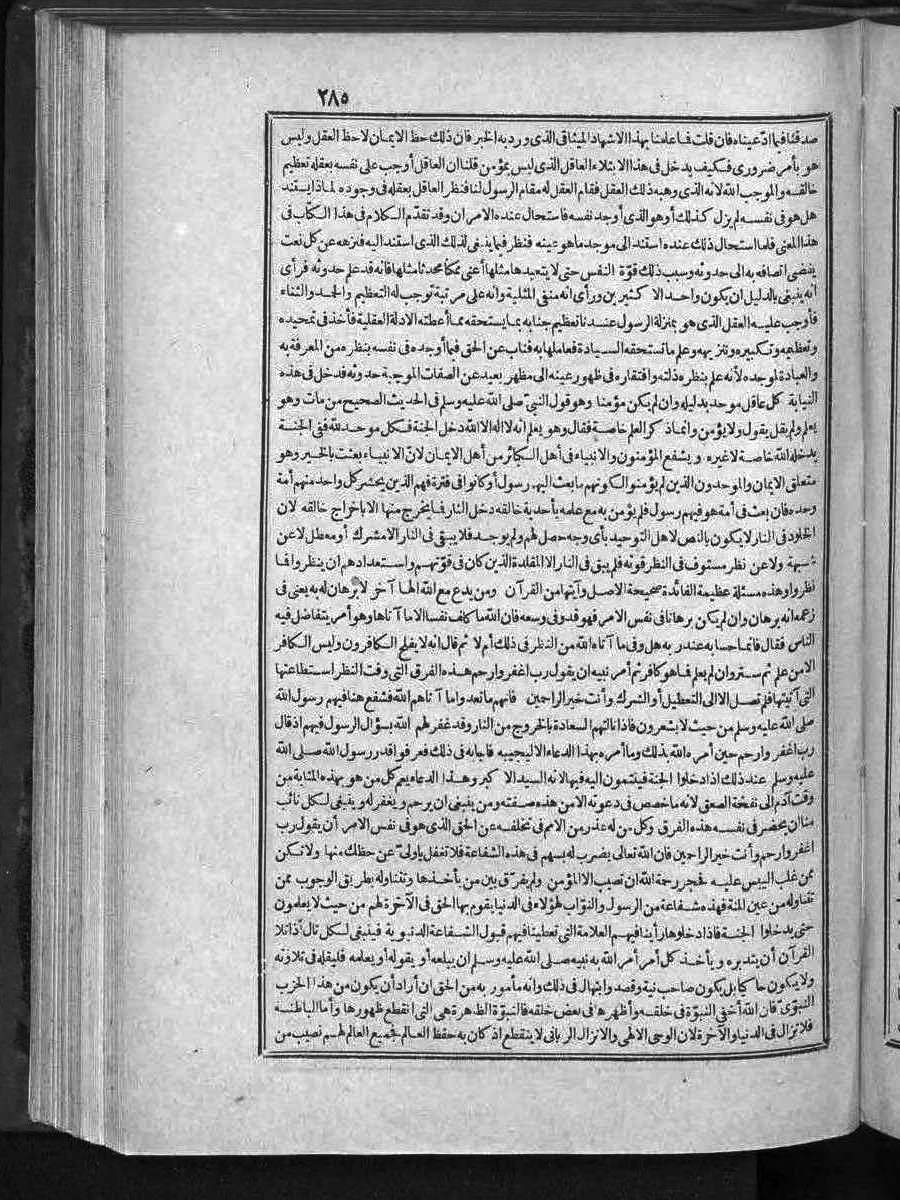 ٢٨٥
صدقنا فيما ادّعيناه فان قلت فما علمنا بهذا الاشهاد الميثاقى الذى ورد به الخبر فان ذلك حظ الايمان لاحظ العقل وليس
هو بأمر ضرورى فكيف يدخل فى هذا الابتلاء العاقل الذى ليس بمؤمن قلنا ان العاقل أوجب على نفسه بعقله تعظيم
خالقه والموجب الله لانه الذى وهبه ذلك العقل فقام العقل له مقام الرسول لنا فنظر العاقل بعقله فى وجوده لماذا يستند
هل هو فى نفسه لم يزل كذلك أو هو الذى أوجد نفسه فاستحال عنده الامران وقد تقدّم الكلام فى هذا الكتاب فى
هذا المعنى فلما استحال ذلك عنده استند الى موجد ما هو عينه فنظر فيما ينبغى لذلك الذى استند اليه فنزهه عن كل نعت
يفضى اتصافه به الى حدوثه وسبب ذلك قوّة النفس حتى لا يتعبدها مثلها أعنى ممكنا محدثا مثلها فانه قد علم حدوثه فرأى
أنه ينبغى بالدليل ان يكون واحد الا كثيرين ورأى انه منفى المثلية وانه على مرتبة توجب له التعظيم والحمد والثناء
فأوجب عليه العقل الذى هو بمنزلة الرسول عندنا تعظيم جنابه بما يستحقه مما أعطته الادلة العقلية فأخذ فى تمجيده
وتعظيمه وتكبيره وتنزيهه وعلم ما تستحقه السيادة فعاملها به فناب عن الحق فيما أوجده فى نفسه بنظره من المعرفة به
والعبادة لموجده لأنه علم بنظره ذلته وافتقاره فى ظهور عينه الى مظهر بعيد عن الصفات الموجبة حدوثه فدخل فى هذه
النيابة كل عاقل موحد بدليله وان لم يكن مؤمنا وهو قول النبىّ صلى الله عليه وسلم فى الحديث الصحيح من مات وهو
يعلم ولم يقل يقول ولا يؤمن وانما ذكر العلم خاصة فقال وهو يعلم انه لا اله الا الله دخل الجنة فكل موحد لله ففى الجنة
يدخله الله خاصة لا غيره ويشفع المؤمنون والانبياء فى أهل الكبائر من أهل الايمان لانّ الانبياء بعثت بالخير وهو
متعلق الايمان والموحدون الذين لم يؤمنوا لكونهم ما بعث اليهم رسول أو كانوا فى فترة فهم الذين يحشر كل واحد منهم أمة
وحده فان بعث فى أمة هو فيهم رسول فلم يؤمن به مع علمه بأحدية خالقه دخل النار فما يخرج منها الا باخراج خالقه لان
الخلود فى النار لا يكون بالنص لاهل التوحيد بأى وجه حصل لهم ولم يوجد فلا يبقى فى النار الا مشرك أو معطل لا عن
شبهة ولا عن نظر مستوف فى النظر قوته فلم يبق فى النار الا المقلدة الذين كان فى قوّتهم واستعدادهم ان ينظروا فما
نظروا وهذه مسئلة عظيمة الفائدة صحيحة الاصل وآيتها من القرآن ومن يدع مع الله الها آخر لا برهان له به يعنى فى
زعمه انه برهان وان لم يكن برهانا فى نفس الامر فهو قد وفى وسعه فان الله ما كلف نفسا الا ما آتاها وهو أمر يتفاضل فيه
الناس فقال فانما حسابه عند ربه هل وفى ما آتاه الله من النظر فى ذلك أم لا ثم قال انه لا يفلح الكافرون وليس الكافر
الا من علم ثم ستر وان لم يعلم فما هو كافر ثم أمر نبيه ان يقول رب اغفر وارحم هذه الفرق التى وفت النظر استطاعتها
التى آتيتها فلم تصل الا الى التعطيل أو الشرك وأنت خير الراحمين فانهم ما تعدوا ما آتاهم الله فشفع هنا فيهم رسول الله
صلى الله عليه وسلم من حيث لا يشعرون فاذا نالتهم السعادة بالخروج من النار وقد غفر لهم الله بسؤال الرسول فيهم اذ قال
رب اغفر وارحم حين أمره الله بذلك وما أمره بهذا الدعاء الا ليجيبه فاجابه فى ذلك فعرفوا قدر رسول الله صلى الله
عليه وسلم عند ذلك اذا دخلوا الجنة فينتمون اليه فيها لانه السيد الاكبر وهذا الدعاء يعم كل من هو بهذه المثابة من
وقت آدم الى نفخة الصعق لانه ما خصص فى دعوته الا من هذه صفته ومن ينبغى ان يرحم ويغفر له وينبغى لكل نائب
منا ان يحضر فى نفسه هذه الفرق وكل من له عذر من الامم فى تخلفه عن الحق الذى هو فى نفس الامر أن يقول رب
اغفر وارحم وأنت خير الراحمين فان الله تعالى يضرب له بسهم فى هذه الشفاعة فلا تغفل ياولىّ عن حظك منها ولا تكن
ممن غلب اليبس عليه فحجر رحمة الله ان تصيب الا المؤمن ولم يفرّق بين من يأخذها وتتناوله بطريق الوجوب ممن
تتناوله من عين المنة فهذه شفاعة من الرسول والنوّاب لهؤلاء فى الدنيا يقوم بها الحق فى الآخرة لهم من حيث لا يعلمون
حتى يدخلوا الجنة فاذا دخلوها رأينا فيهم العلامة التى تعطينا فيهم قبول الشفاعة الدنيوية فينبغى لكل تال اذا تلا
القرآن أن يتدبره ويأخذ كل أمر أمر الله به نبيه صلى الله عليه وسلم ان يبلغه أو يقوله أو يعلمه فليقله فى تلاوته
ولا يكون حاكيا بل يكون صاحب نية وقصد وابتهال فى ذلك وانه مأمور به من الحق ان أراد أن يكون من هذا الحزب
النبوىّ فان الله أخفى النبوّة فى خلقه وأظهرها فى بعض خلقه فالنبوّة الظاهرة هى التى انقطع ظهورها وأما الباطنة
فلا تزال فى الدنيا والآخرة لان الوحى الالهى والانزال الربانى لا ينقطع اذ كان به حفظ العالم فجميع العالم لهم نصيب من